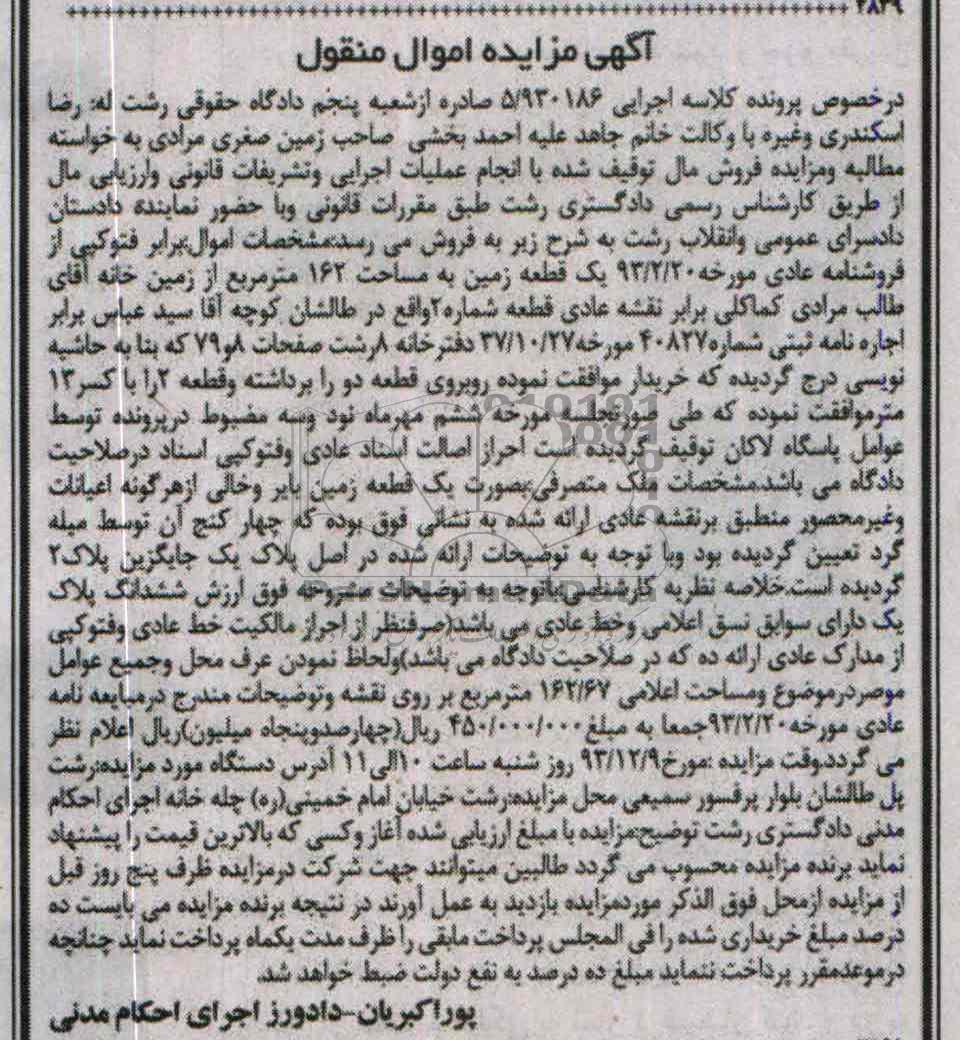 ۲۸۲۹
آگهی مزایده اموال منقول
درخصوص پرونده کلاسه اجرایی ۵/۹۳۰۱۸۶ صادره ازشعبه پنجم دادگاه حقوقی رشت له: رضا
اسکندری وغیره با وکالت خانم جاهد علیه احمد بخشی صاحب زمین صغری مرادی به خواسته
مطالبه ومزایده فروش مال توقیف شده با انجام عملیات اجرایی وتشریفات قانونی وارزیابی مال
از طریق کارشناس رسمی دادگستری رشت طبق مقررات قانونی وبا حضور نماینده دادستان
دادسرای عمومی وانقلاب رشت به شرح زیر به فروش می رسد:مشخصات اموال:برابر فتوکپی از
فروشنامه عادی مورخه۹۳/۲/۲۰ یک قطعه زمین به مساحت ۱۶۲ مترمربع از زمین خانه آقای
طالب مرادی کماکلی برابر نقشه عادی قطعه شماره۲واقع در طالشان کوچه آقا سید عباس برابر
اجاره نامه ثبتی شماره۴۰۸۲۷ مورخه۳۷/۱۰/۲۷ دفترخانه ۸رشت صفحات ۸و۷۹ که بنا به حاشیه
نویسی درج گردیده که خریدار موافقت نموده روبروی قطعه دو را برداشته وقطعه ۲را با کسر۱۳
مترموافقت نموده که طی صورتجلسه مورخه ششم مهرماه نود وسه مضبوط درپرونده توسط
عوامل پاسگاه لاکان توقیف گردیده است احراز اصالت اسناد عادی وفتوکپی اسناد درصلاحیت
دادگاه می باشد.مشخصات ملک متصرفی:بصورت یک قطعه زمین بایر وخالی ازهرگونه اعیانات
وغیرمحصور منطبق برنقشه عادی ارائه شده به نشانی فوق بوده که چهار کنج آن توسط میله
گرد تعیین گردیده بود وبا توجه به توضیحات ارائه شده در اصل پلاک یک جایگزین پلاک۲
گردیده است.خلاصه نظریه کارشناسی:باتوجه به توضیحات مشروحه فوق ارزش ششدانگ پلاک
یک دارای سوابق نسق اعلامی وخط عادی می باشد(صرفنظر از احراز مالکیت خط عادی وفتوکپی
از مدارک عادی ارائه ده که در صلاحیت دادگاه می باشد)ولحاظ نمودن عرف محل وجمیع عوامل
موصردرموضوع ومساحت اعلامی ۱۶۲/۶۷ مترمربع بر روی نقشه وتوضیحات مندرج درمبایعه نامه
عادی مورخه۹۳/۲/۲۰جمعا به مبلغ۴۵۰/۰۰۰/۰۰۰ ریال(چهارصدوپنجاه میلیون)ریال اعلام نظر
می گردد.وقت مزایده :مورخ۹۳/۱۲/۹ روز شنبه ساعت ۱۰الی۱۱ آدرس دستگاه مورد مزایده:رشت
پل طالشان بلوار پرفسور سمیعی محل مزایده:رشت خیابان امام خمینی(ره) چله خانه اجرای احکام
مدنی دادگستری رشت توضیح:مزایده با مبلغ ارزیابی شده آغاز وکسی که بالاترین قیمت را پیشنهاد
نماید برنده مزایده محسوب می گردد طالبین میتوانند جهت شرکت درمزایده ظرف پنج روز قبل
از مزایده ازمحل فوق الذکر موردمزایده بازدید به عمل آورند در نتیجه برنده مزایده می بایست ده
درصد مبلغ خریداری شده را فی المجلس پرداخت مابقی را ظرف مدت یکماه پرداخت نماید چنانچه
درموعدمقرر پرداخت ننماید مبلغ ده درصد به نفع دولت ضبط خواهد شد.
پوراکبریان-دادورز اجرای احکام مدنی